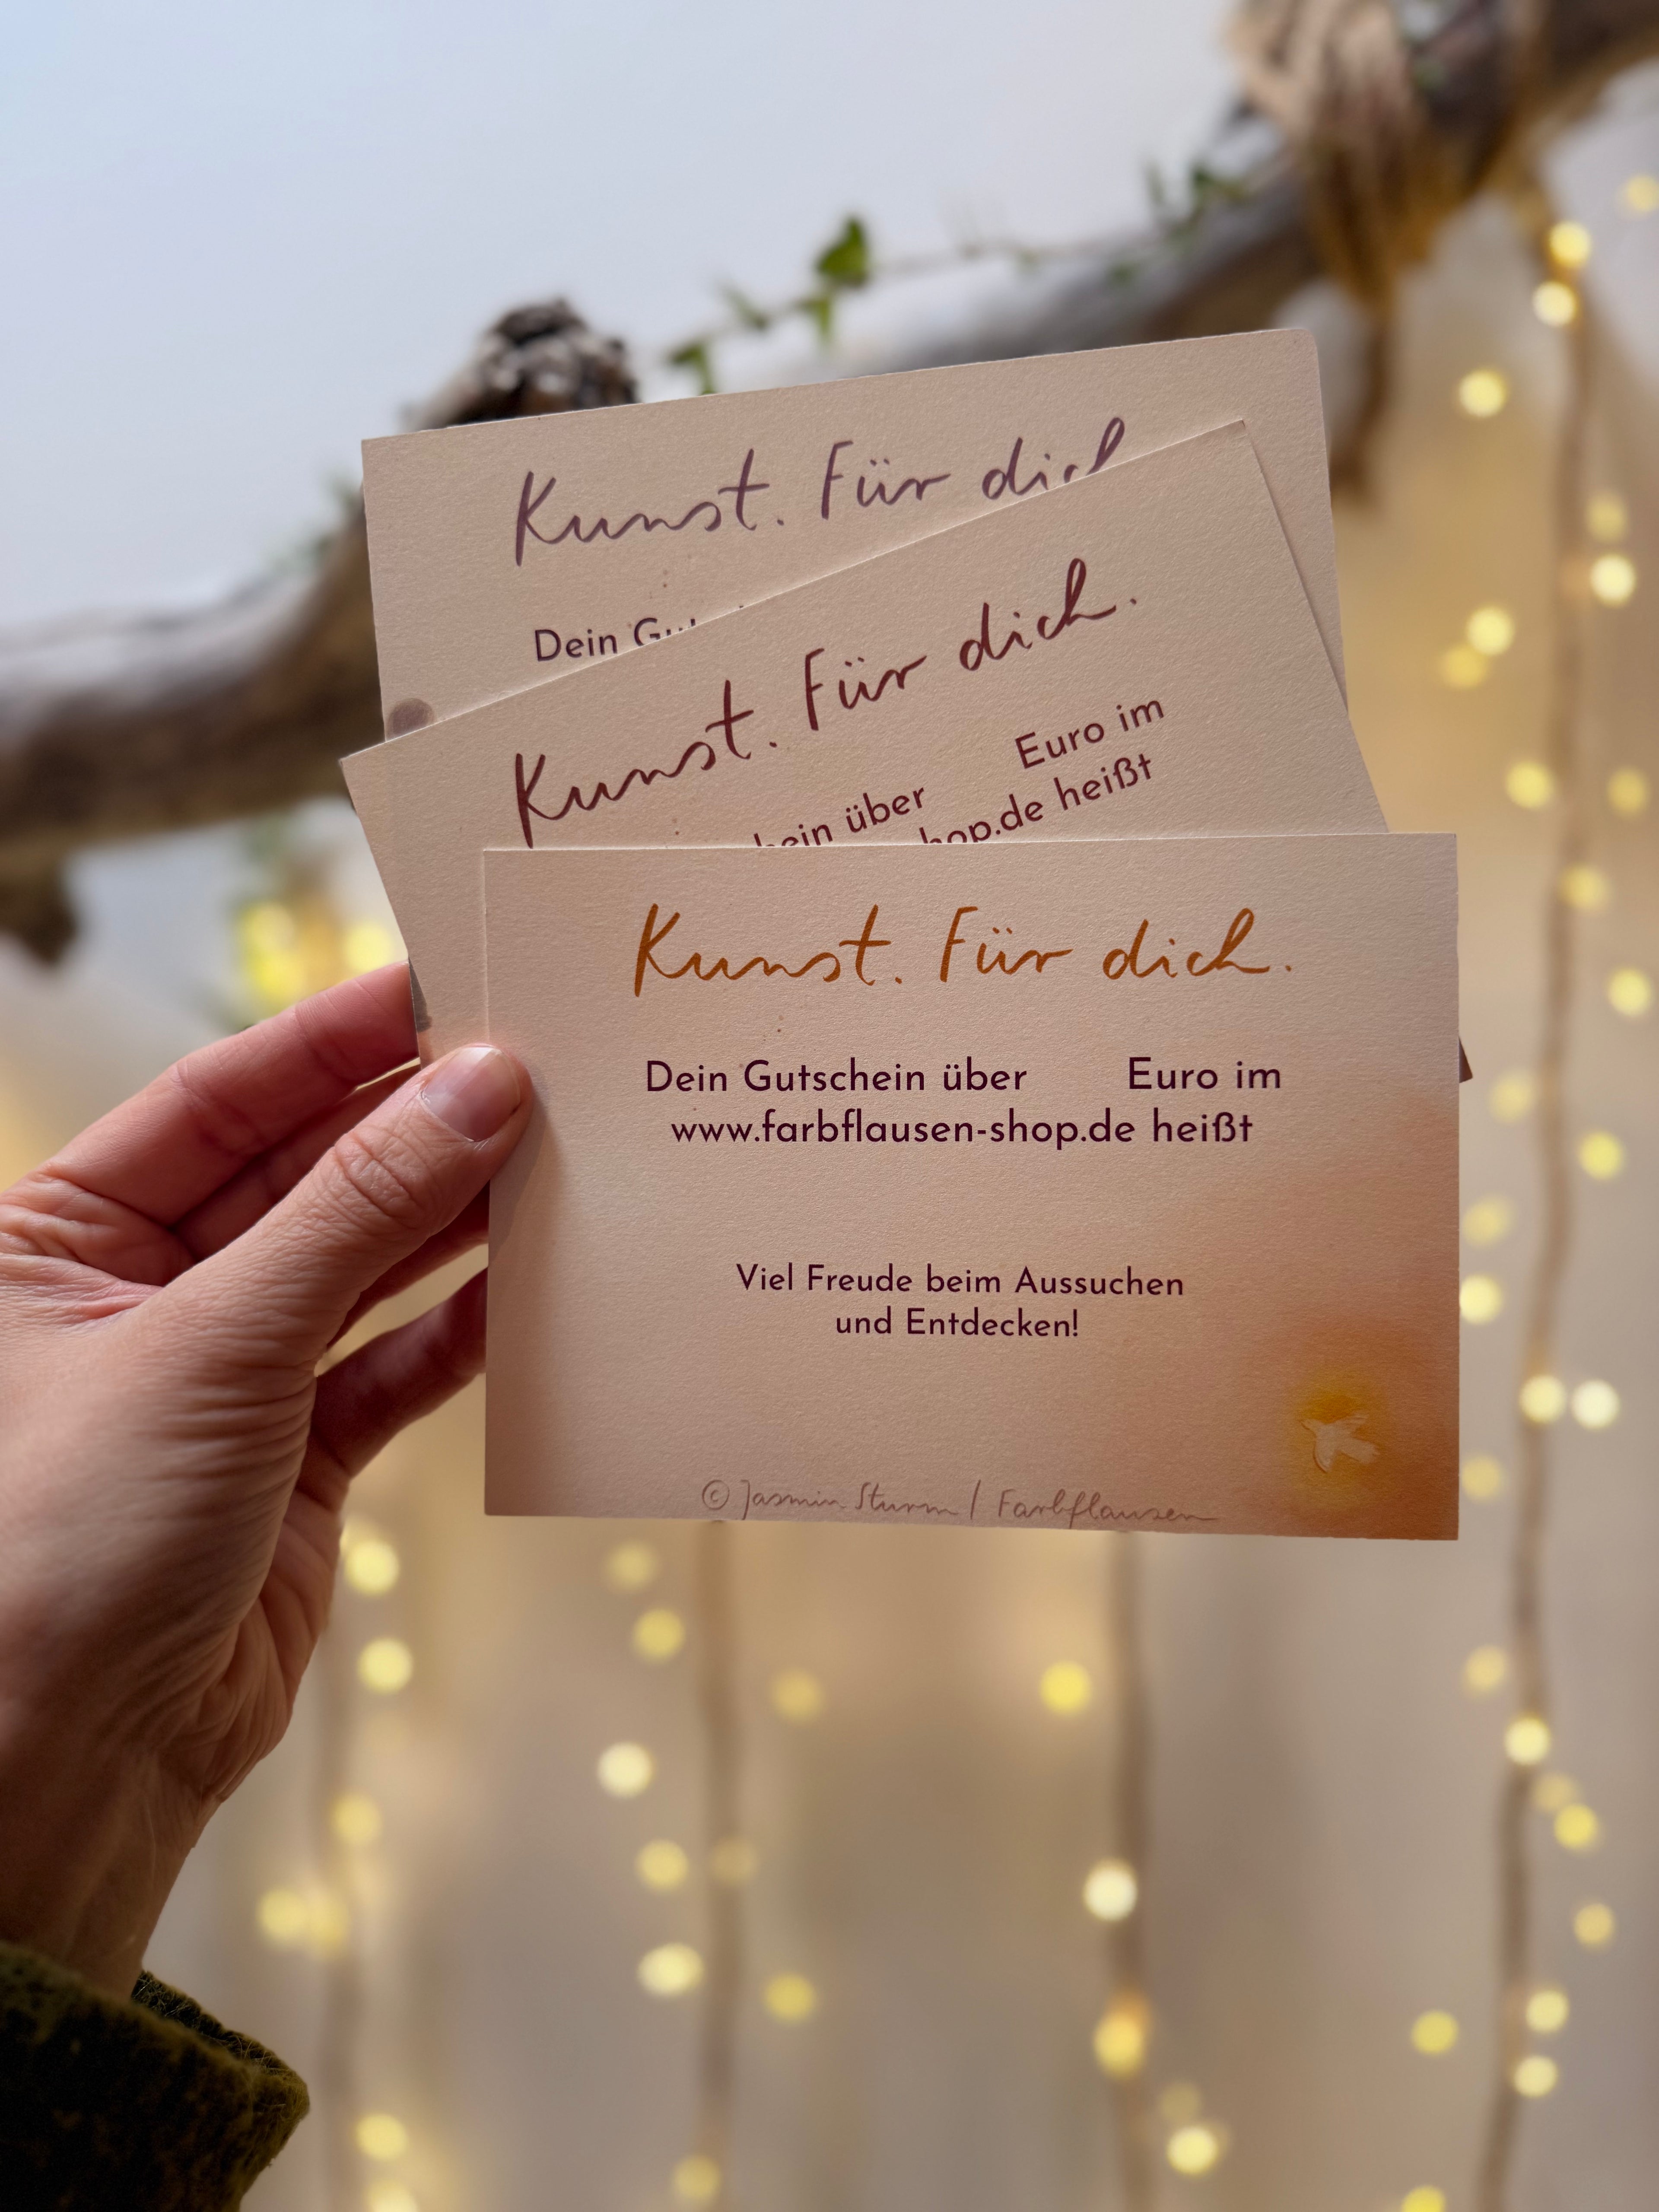 Kunst. Für dich
Dein
Kunst. Für dich.
über Euro im
shop.de heißt
Kunst. Für dich.
Dein Gutschein über Euro im
www.farbflausen-shop.de heißt
Viel Freude beim Aussuchen
und Entdecken!
© Jasmin Sturm / Farbflausen